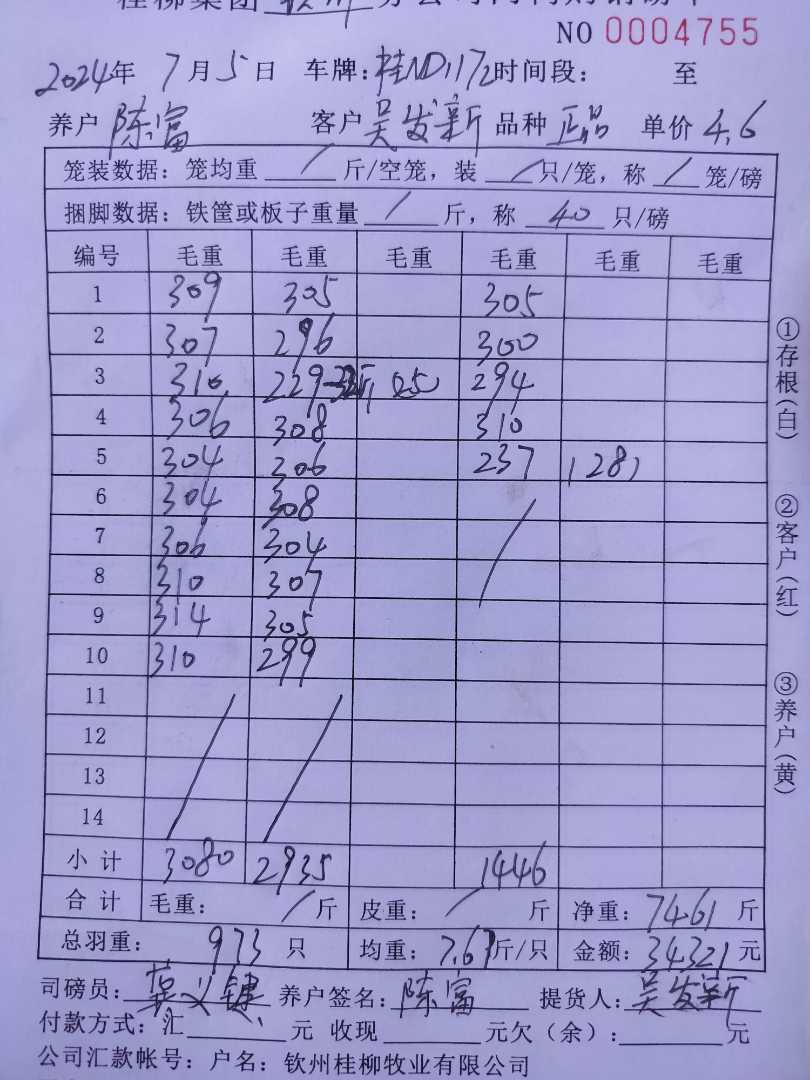 桂柳集团 钦州 分公司
NO 0004755
2024年 7月5日 车牌:桂ND1172时间段: 至
养户 陈富 客户 吴发新 品种 正品 单价 4.6
笼装数据:笼均重 / 斤/空笼,装 / 只/笼,称 / 笼/磅
捆脚数据:铁筐或板子重量 / 斤,称 40 只/磅
编号 毛重 毛重 毛重 毛重 毛重 毛重
1 309 305 305
2 307 296 300
3 310 229 294
4 306 308 310
5 304 306 237 (28)
6 304 308 /
7 306 304
8 310 307
9 314 305
10 310 299
11 / /
12
13
14
小计 3080 2935 1446
合计 毛重: / 斤 皮重: / 斤 净重: 7461 斤
总羽重: 973 只 均重: 7.67斤/只 金额: 34321 元
司磅员: 养户签名: 陈富 提货人: 吴发新
付款方式:汇 元 收现 元欠(余): 元
公司汇款帐号:户名:钦州桂柳牧业有限公司
①存根(白)
②客户(红)
③养户(黄)